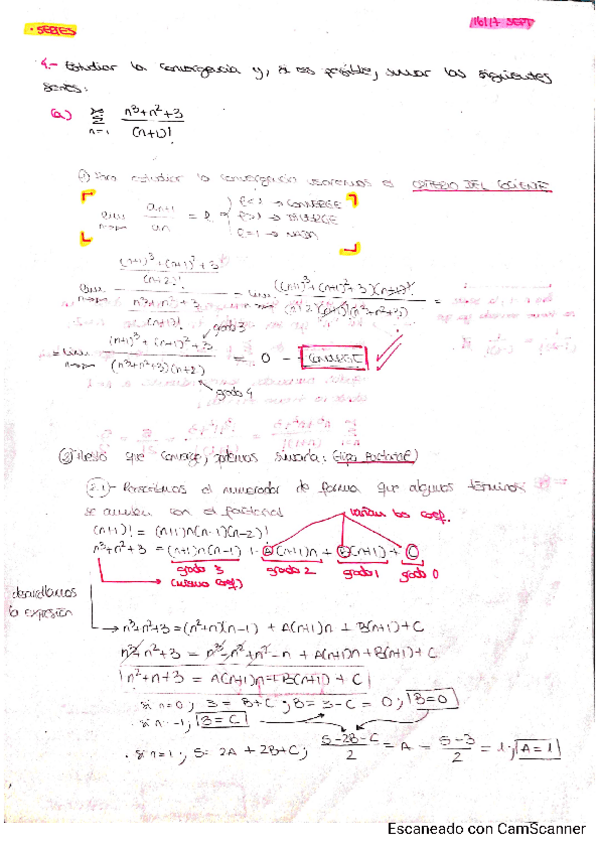 · SERIES
16/17 SEPT
4.- Estudiar la convergencia y, si es posible, sumar las siguientes
series:
(a) ∞ Σ n=1 (n³+n²+3)/(n+1)!
① Para estudiar la convergencia usaremos el CRITERIO DEL COCIENTE
lim n→∞ an+1/an = l ⇒ { l<1 → CONVERGE
l>1 → DIVERGE
l=1 → NADA
lim n→∞ (((n+1)³+(n+1)²+3)/(n+2)!)/((n³+n²+3)/(n+1)!) = lim ((n+1)³+(n+1)²+3)(n+1)!/((n+2)(n+1)!(n³+n²+3)) =
grado 3
= lim n→∞ ((n+1)³+(n+1)²+3)/((n³+n²+3)(n+2)) = 0 → CONVERGE
grado 4
② que converge, podemos sumarla: (tipo factorial)
2.1- el numerador de forma que algunos términos
se anulen con el factorial
varían los coef.
(n+1)! = (n+1)n(n-1)(n-2)!
n³+n²+3 = (n+1)n(n-1) + A(n+1)n + B(n+1) + C
grado 3 grado 2 grado 1 grado 0
(mismo coef)
desarrollamos
la expresión
→ n³+n²+3 = (n²+n)(n-1) + A(n+1)n + B(n+1) + C
n³+n²+3 = n³-n²+n²-n + A(n+1)n + B(n+1) + C
n²+n+3 = A(n+1)n + B(n+1) + C
· si n=0; 3 = B+C; B = 3-C = 0; B=0
· si n=-1; 3=C
· si n=1; 5= 2A + 2B+C; (5-2B-C)/2 = A = (5-3)/2 = 1; A=1
Escaneado con CamScanner